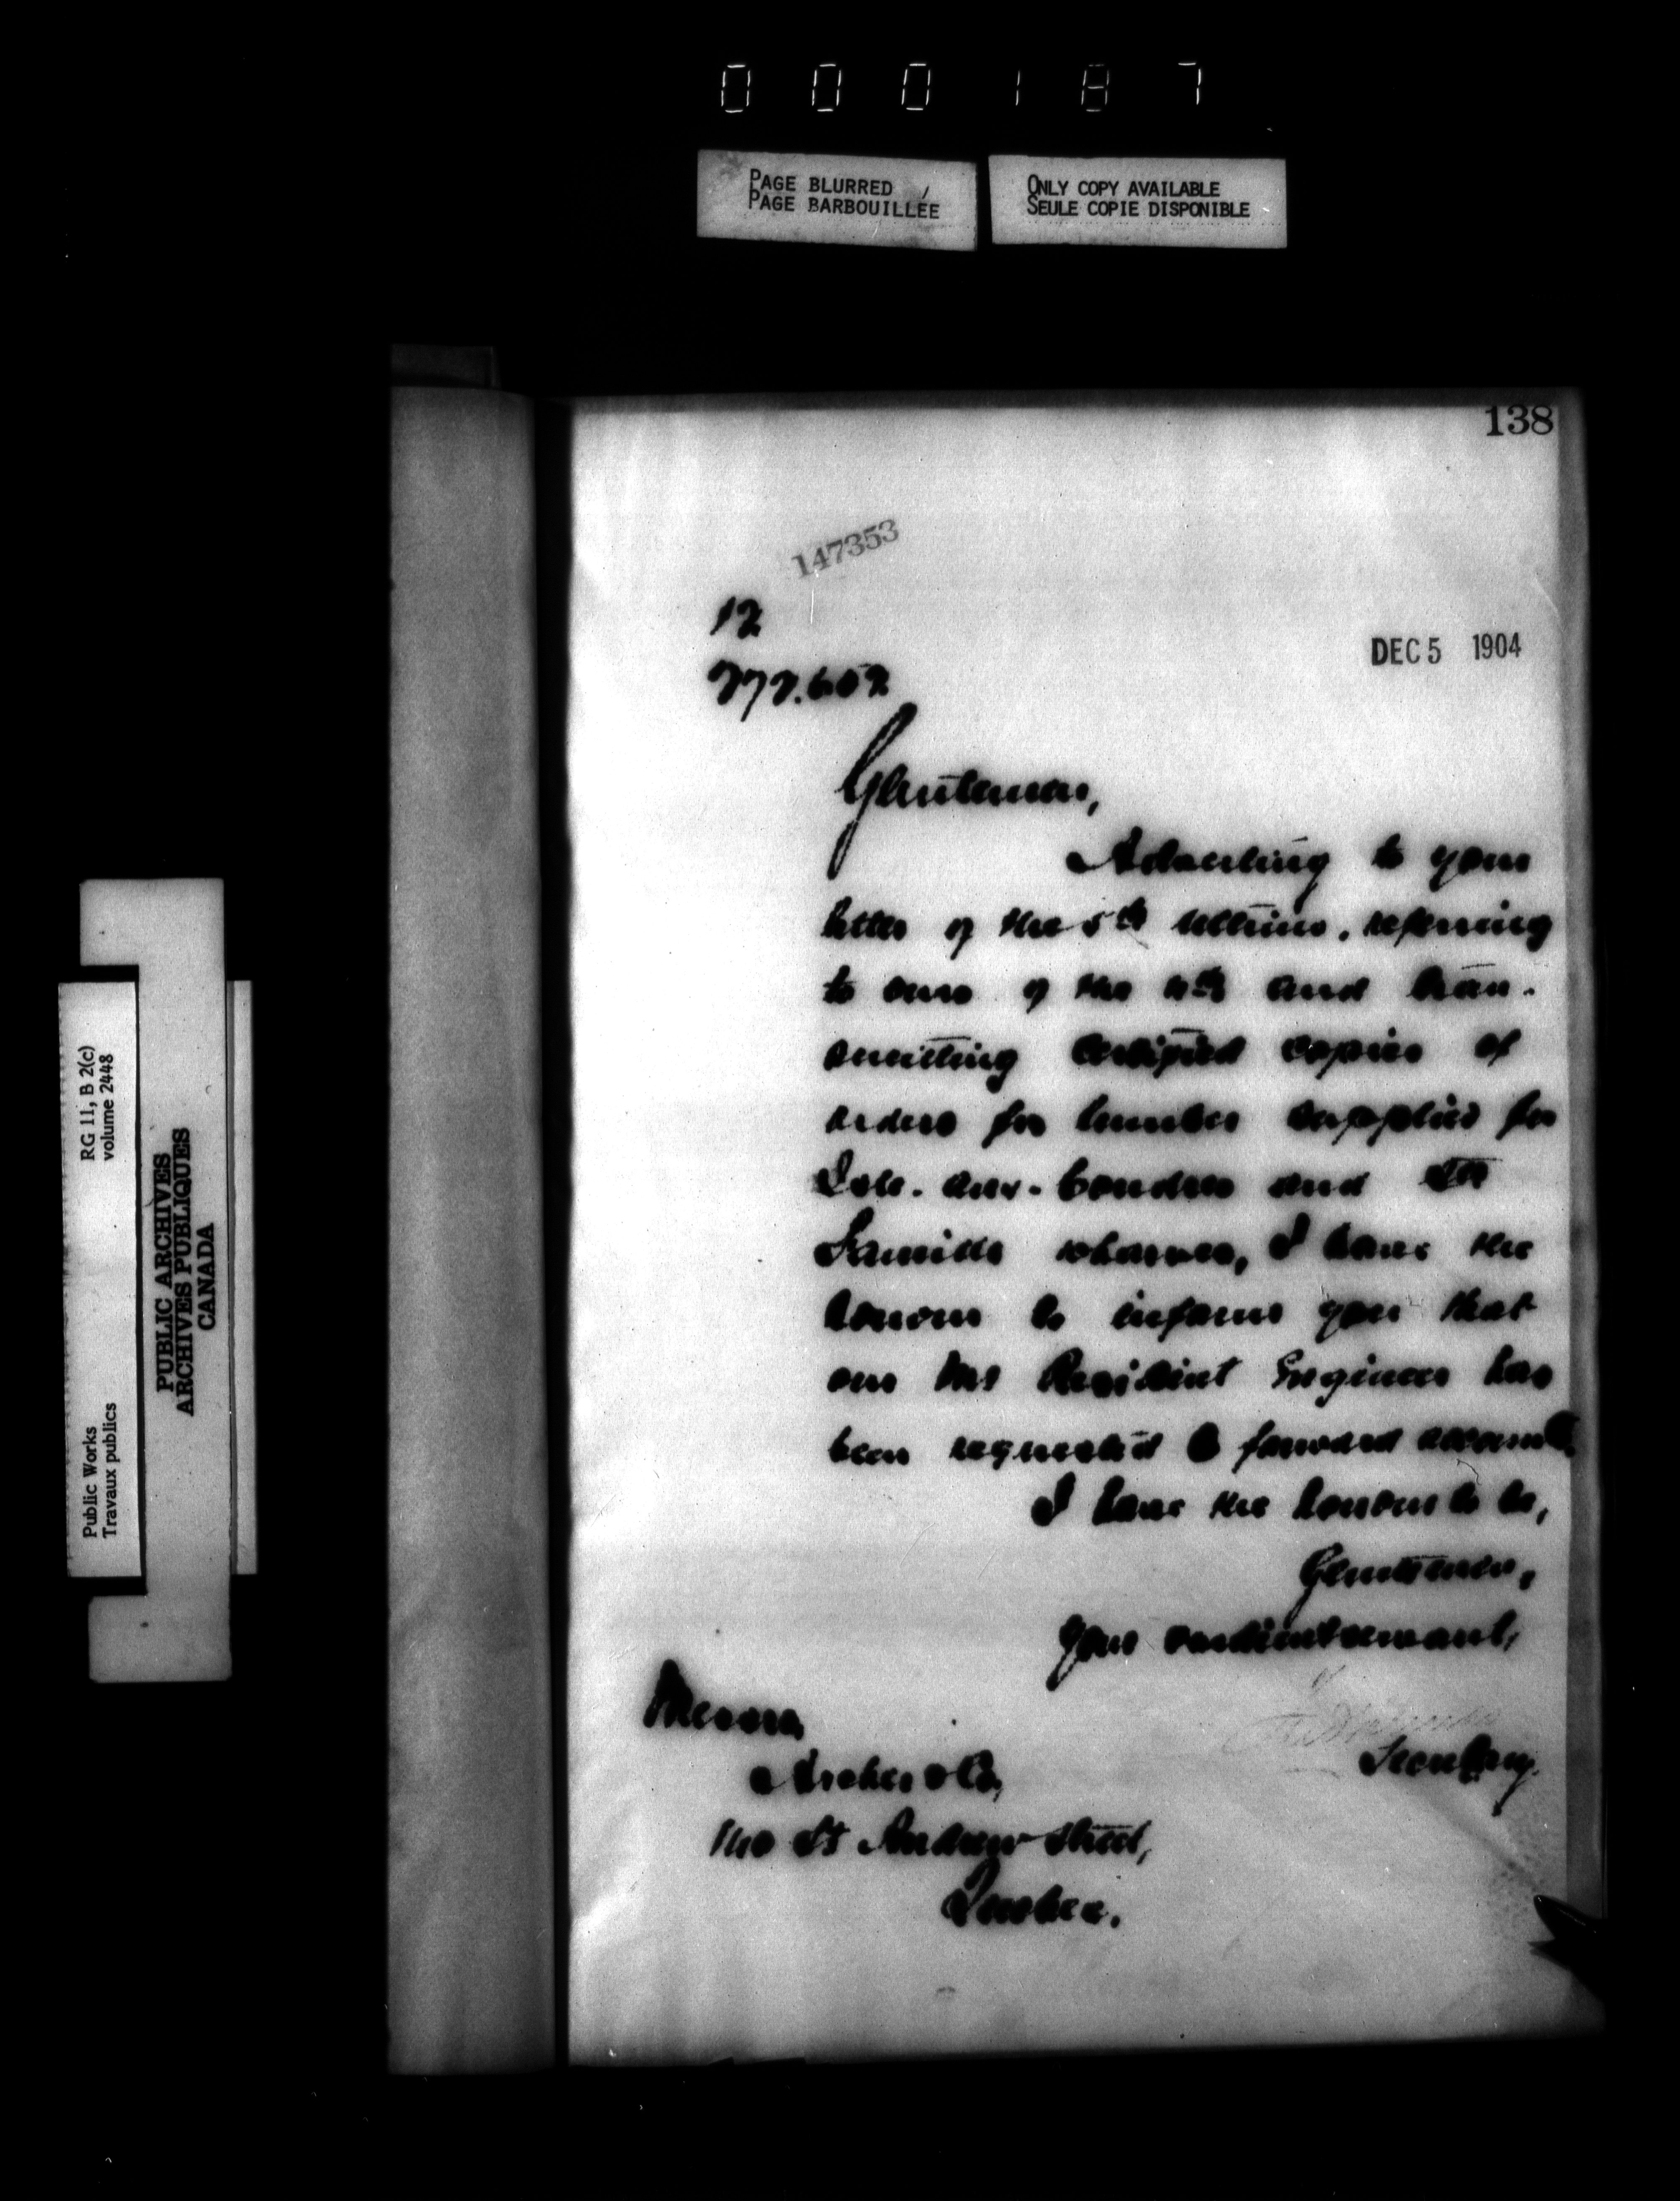 000187
PAGE BLURRED
PAGE BARBOUILLÉE
ONLY COPY AVAILABLE
SEULE COPIE DISPONIBLE
138
147353
12
DEC 5 1904
Gentlemen,
Adverting to your
letter of the 5th ultimo, referring
to ours of the 4th and tran-
smitting certified copies of
orders for lumber supplied for
Isle-aux-Coudres and Ste
Famille wharves, I have the
honour to inform you that
our Resident Engineer has
been requested to forward accounts.
I have the honour to be,
Gentlemen,
Your obedient servant,
Secretary.
Messrs
Archer & Co,
140 St Andrew Street,
Quebec.
RG 11, B 2(c)
volume 2448
Public Works
Travaux publics
PUBLIC ARCHIVES
ARCHIVES PUBLIQUES
CANADA